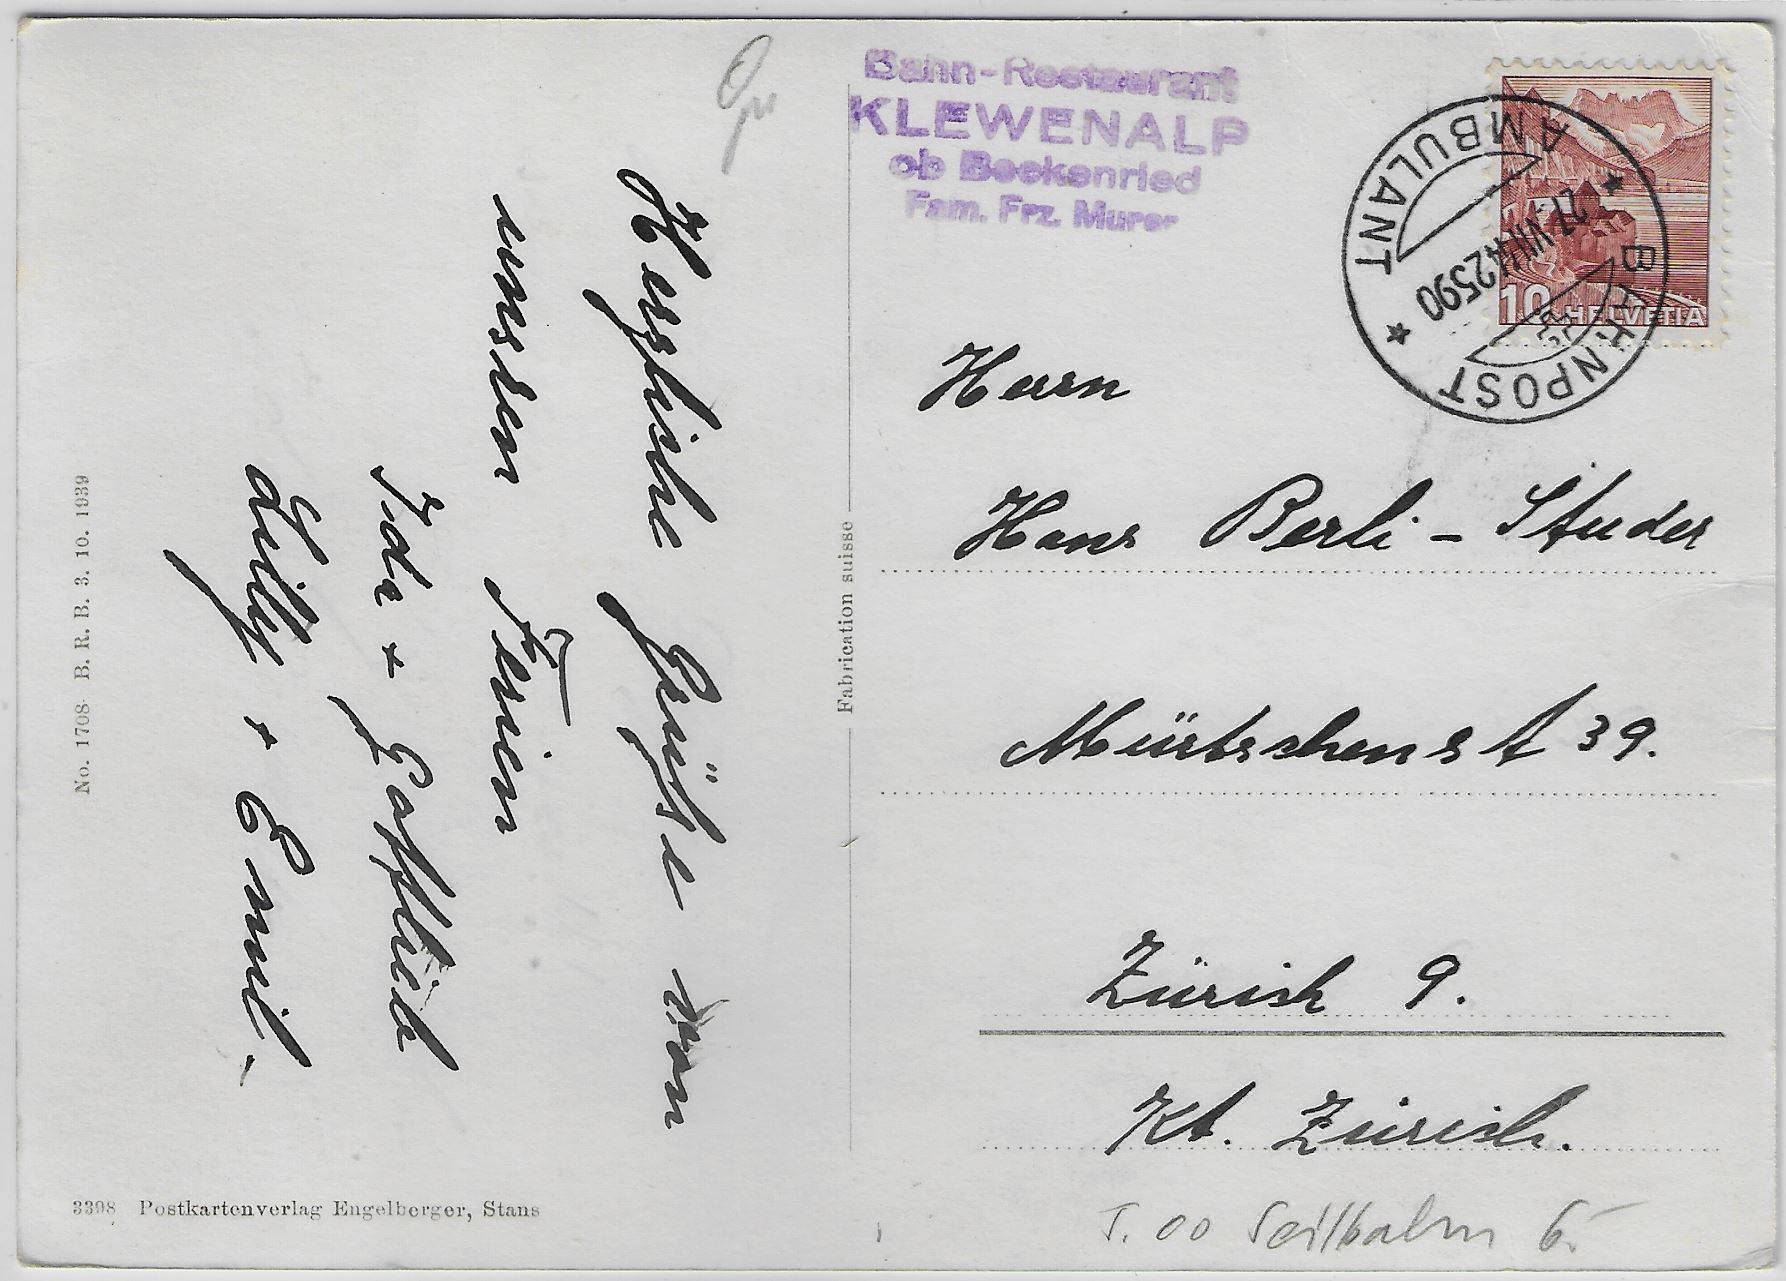 Bahn-Restaurant
KLEWENALP
ob Beckenried
Fam. Frz. Murer
AMBULANT
27.VII.44 2590
BAHNPOST
10 HELVETIA
Herzliche Grüsse von
unseren Ferien
Ida +
Lilly + Emil.
Herrn
Hans Berli - Studer
Mürtschenst 39.
Zürich 9.
Kt. Zürich.
Fabrication suisse
No. 1708 B. R. B. 3. 10. 1939
3398 Postkartenverlag Engelberger, Stans
Seilbahn 6.-